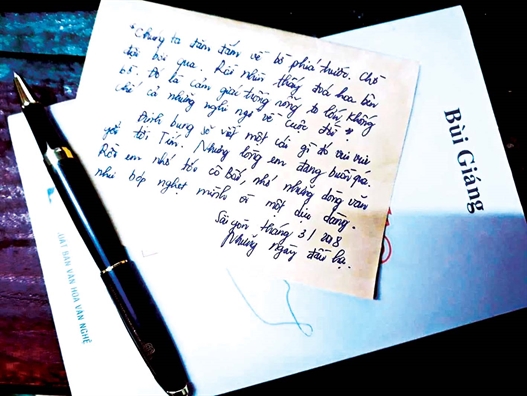 "Chúng ta đăm đắm về bờ phía trước. Chờ
đợi bùi qua. Rồi nhìn thấy đoá hoa bên
bờ. Đó là cảm giác trống rỗng to lớn, không
chỉ cả những nghi ngờ về cuộc đời"
Anh bưng sẽ viết một cái gì đó vui vui
gởi tới Tím. Nhưng lòng em đang buồn quá.
Rồi em nhớ tới cô Bảo, nhớ những dòng văn
như bóp nghẹt mình vì một dịu dàng.
Sài gòn tháng 3/2018
Những ngày đầu hạ.
Bùi Giáng
XUẤT BẢN VĂN HÓA VĂN NGHỆ